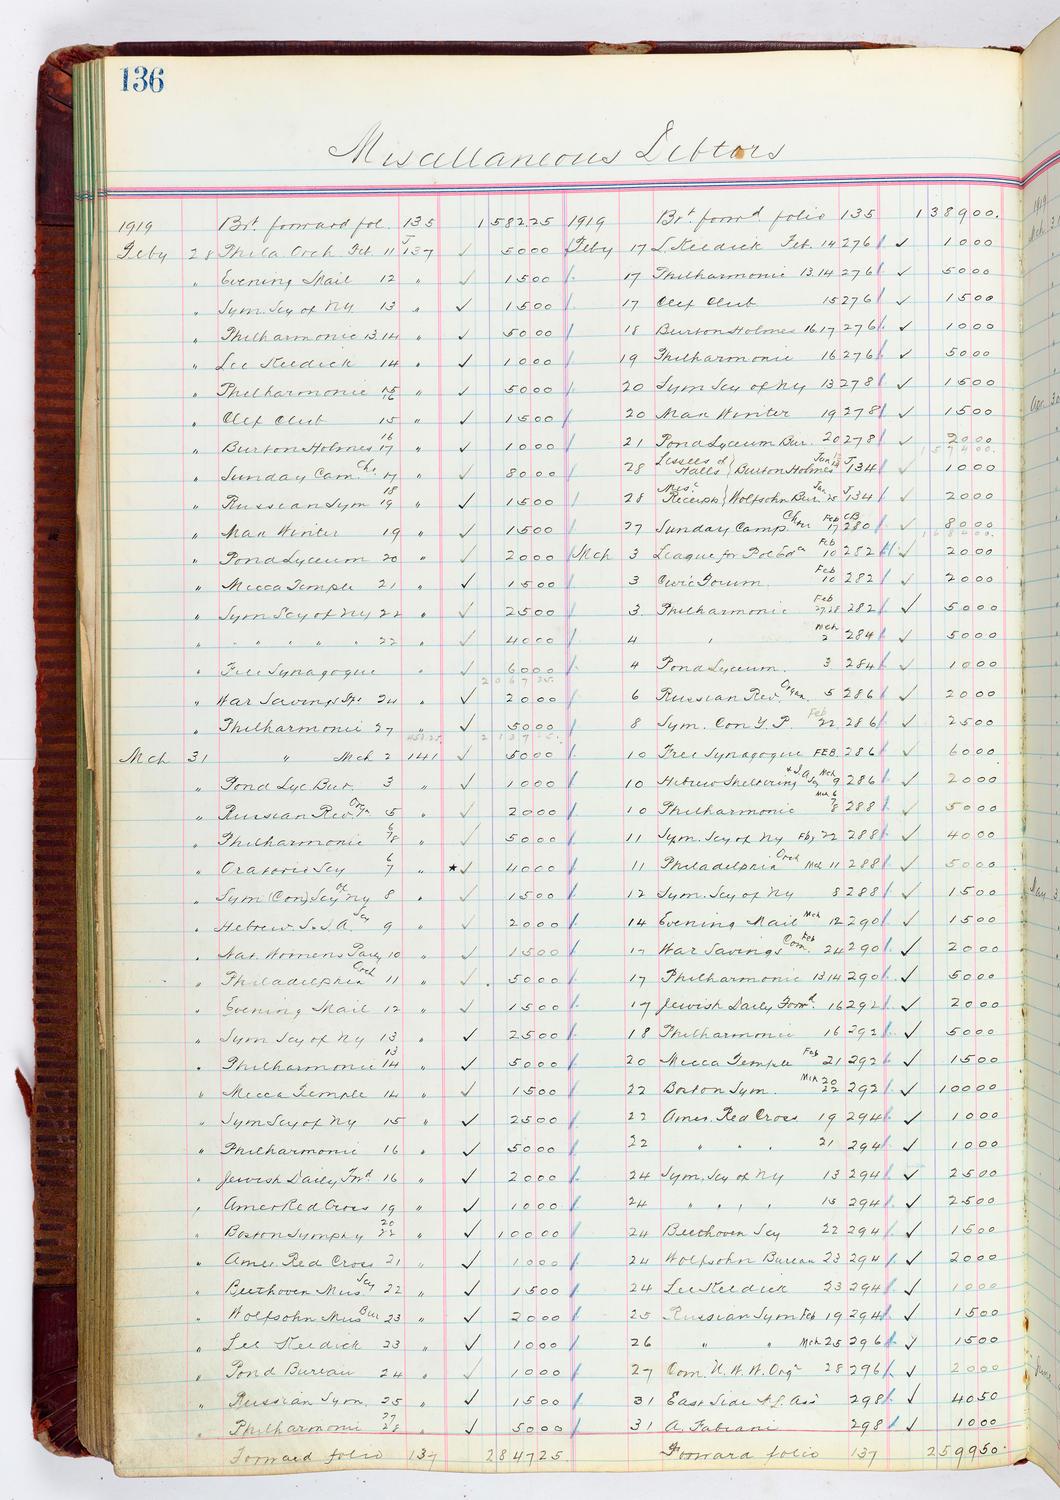 136
Miscellaneous Debtors
1919 Brt. forward fol. 135 158225 1919 Brt forwd folio 135 138900.
Feby 28 Phila Orch Feb. 11 J 137 ✓ 5000 Feby 17 L. Keedick Feb. 14 276 ✓ 1000
" Evening Mail 12 " ✓ 1500 17 Philharmonic 13.14 276 ✓ 5000
" Sym. Scy of Ny 13 " ✓ 1500 17 Clef Club 15 276 ✓ 1500
" Philharmonic 13.14 " ✓ 5000 18 Burton Holmes 16 17 276 ✓ 1000
" Lee Keedick 14 " ✓ 1000 19 Philharmonic 16 276 ✓ 5000
" Philharmonic 15 16 " ✓ 5000 20 Sym Scy of Ny 13 278 ✓ 1500
" Clef Club 15 " ✓ 1500 20 Man Winter 19 278 ✓ 1500
" Burton Holmes 16 17 " ✓ 1000 21 Pond Lyceum Bur. 20 278 ✓ 2000
157400.
" Sunday Cam. Chr. 17 " ✓ 8000 28 Lessees of Halls } Burton Holmes Jan J 134 ✓ 1000
" Russian Sym 18 19 " ✓ 1500 28 Misc Receipts } Wolfsohn Bur. Jan 25 J 134 ✓ 2000
" Man Winter 19 " ✓ 1500 27 Sunday Camp. Chr Feb 17 CB 280 ✓ 8000
168400.
" Pond Lyceum 20 " ✓ 2000 Mch 3 League for Pol Eda Feb 10 282 ✓ 2000
" Mecca Temple 21 " ✓ 1500 3 Civic Forum. Feb 10 282 ✓ 2000
" Sym Scy of Ny 22 " ✓ 2500 3 Philharmonic Feb 27 28 282 ✓ 5000
" " " " " 22 " ✓ 4000 4 " Mch 2 284 ✓ 5000
" Free Synagogue " ✓ 6000 4 Pond Lyceum. 3 284 ✓ 1000
206725.
" War Savings 24 " ✓ 2000 6 Russian Rev. Organ. 5 286 ✓ 2000
" Philharmonic 27 " ✓ 5000 8 Sym. Con Y. P. Feb 22 286 ✓ 2500
Mch 31 " Mch 2 141 ✓ 5000 10 Free Synagogue FEB. 286 ✓ 6000
" Pond Lyc Bur. 3 " ✓ 1000 10 Hebrew Sheltering & I. A. Scy Mch 9 286 ✓ 2000
" Russian Rev. Orgn 5 " ✓ 2000 10 Philharmonic Mch 6 7 8 288 ✓ 5000
" Philharmonic 6 7/8 " ✓ 5000 11 Sym. Scy of Ny Feb 22 288 ✓ 4000
" Oratorio Scy 6 7 " ★ ✓ 4000 11 Philadelphia Orch Mch 11 288 ✓ 5000
" Sym (Con) Scy of Ny 8 " ✓ 1500 12 Sym. Scy of Ny 8 288 ✓ 1500
" Hebrew S. I. A. Scy 9 " ✓ 2000 14 Evening Mail Mch 12 290 ✓ 1500
" Nat. Womens Party 10 " ✓ 1500 17 War Savings Com. Feb 24 290 ✓ 2000
" Philadelphia Orch 11 " ✓ 5000 17 Philharmonic 13 14 290 ✓ 5000
" Evening Mail 12 " ✓ 1500 17 Jewish Daily Forwd. 16 292 ✓ 2000
" Sym Scy of Ny 13 " ✓ 2500 18 Philharmonic 16 292 ✓ 5000
" Philharmonic 13 14 " ✓ 5000 20 Mecca Temple Feb 21 292 ✓ 1500
" Mecca Temple 14 " ✓ 1500 22 Boston Sym. Mch 20 22 292 ✓ 10000
" Sym Scy of Ny 15 " ✓ 2500 22 Amer. Red Cross 19 294 ✓ 1000
" Philharmonic 16 " ✓ 5000 22 " " " 21 294 ✓ 1000
" Jewish Daily Frd 16 " ✓ 2000 24 Sym. Scy of Ny 13 294 ✓ 2500
" Amer Red Cross 19 " ✓ 1000 24 " " " " 15 294 ✓ 2500
" Boston Symphy 20 22 " ✓ 10000 24 Beethoven Scy 22 294 ✓ 1500
" Amer. Red Cross 21 " ✓ 1000 24 Wolfsohn Bureau 23 294 ✓ 2000
" Beethoven Mus Scy 22 " ✓ 1500 24 Lee Keedick 23 294 ✓ 1000
" Wolfsohn Mus Bur 23 " ✓ 2000 25 Russian Sym Feb 19 294 ✓ 1500
" Lee Keedick 23 " ✓ 1000 26 " " Mch 25 296 ✓ 1500
" Pond Bureau 24 " ✓ 1000 27 Com. N. W. W. Orgn 28 296 ✓ 2000
" Russian Sym. 25 " ✓ 1500 31 East Side 298 ✓ 4050
" Philharmonic 27 28 " ✓ 5000 31 A. Fabiani 298 ✓ 1000
Forward folio 137 284725. Forward folio 137 259950.